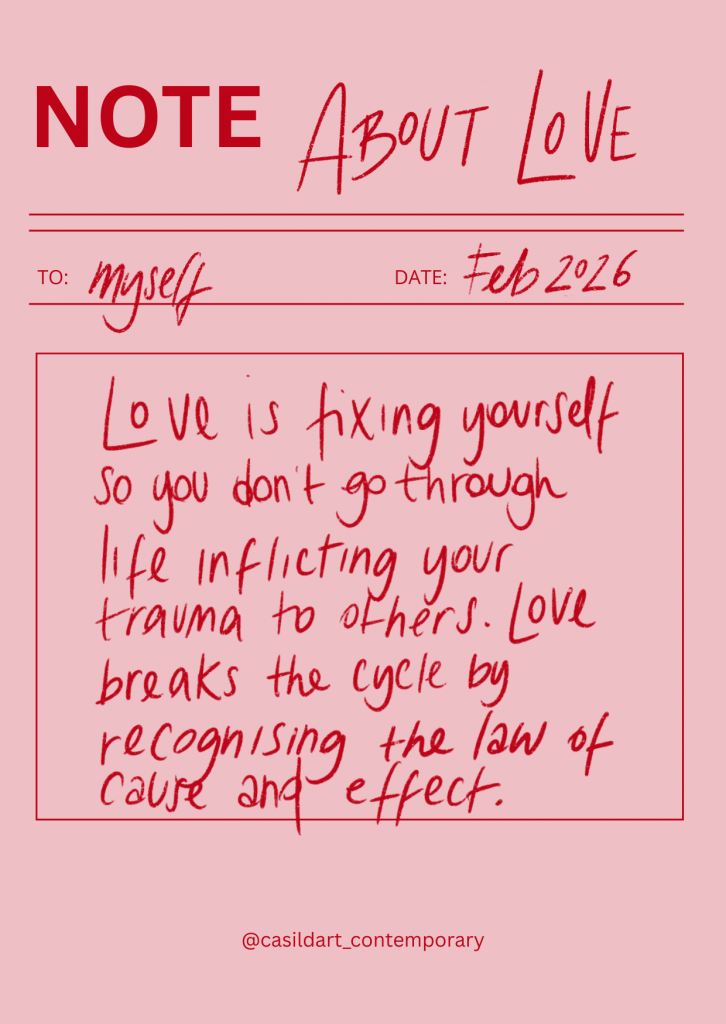 NOTE About Love
TO: myself DATE: Feb 2026
Love is fixing yourself
so you don't go through
life inflicting your
trauma to others. Love
breaks the cycle by
recognising the law of
cause and effect.
@casildart_contemporary